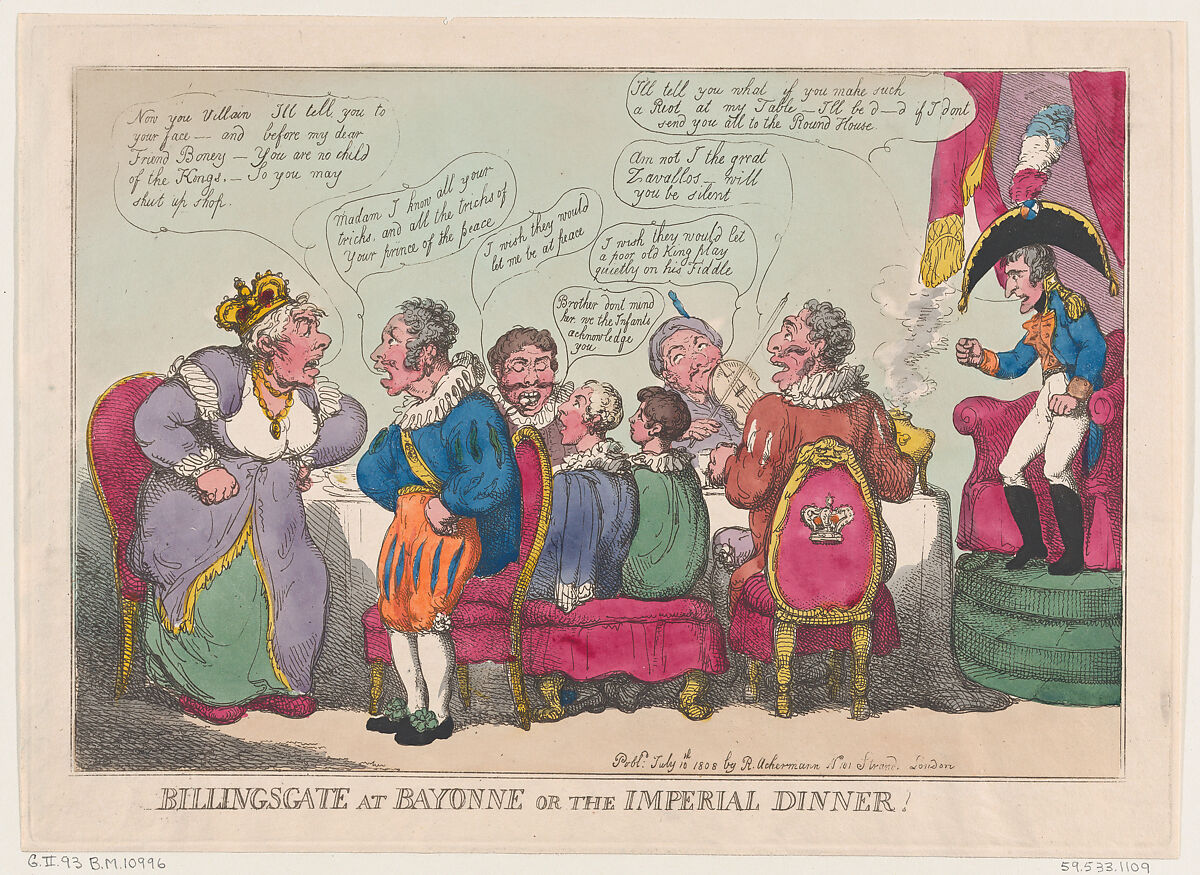 Now you Villain I'll tell you to
your face — and before my dear
Friend Boney — You are no child
of the Kings, — So you may
shut up shop.
Madam I know all your
tricks, and all the trichs of
Your prince of the peace
I wish they would
let me be at peace
Brother dont mind
her we the Infants
acknowledge
you
I wish they would let
a poor old King play
quietly on his Fiddle
Am not I the great
Zavallos — will
you be silent
I'll tell you what if you make such
a Riot at my Table — I'll be d—d if I dont
send you all to the Round House
Publ.d July 10th 1808 by R. Ackermann No 101 Strand. London
BILLINGSGATE AT BAYONNE OR THE IMPERIAL DINNER!
G.II.93 B.M.10996
59.533.1109